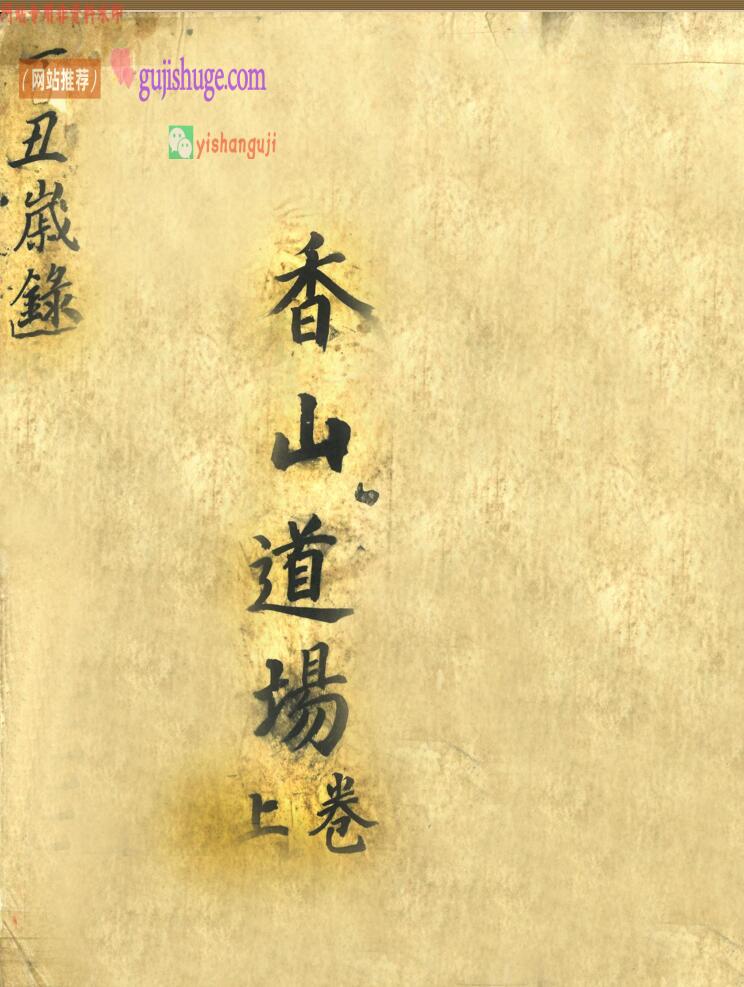 香山道場
卷上
丑歲錄
(网站推荐)
gujishuge.com
yishanguji